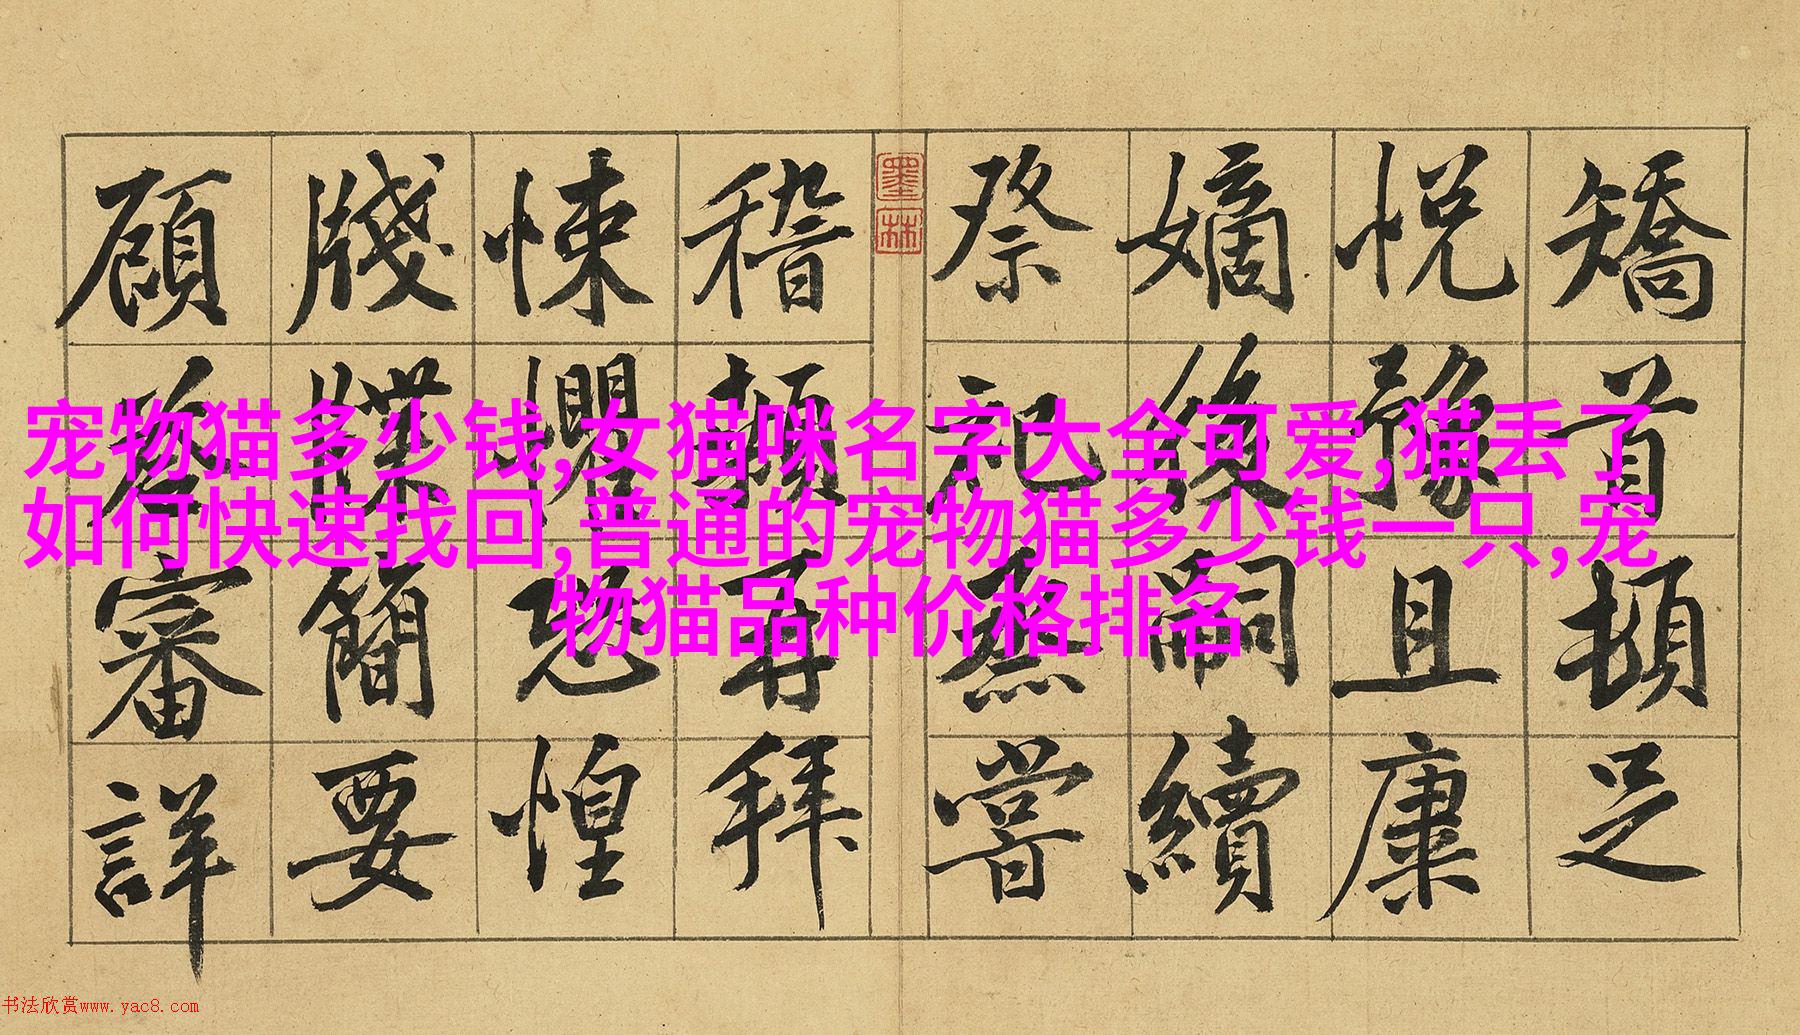 矯首頓足
悅豫且康
嫡後嗣續
祭祀蒸嘗
稽顙再拜
悚懼恐惶
牋牒簡要
顧答審詳
墨林
宠物猫多少钱,女猫咪名字大全可爱,猫丢了
如何快速找回,普通的宠物猫多少钱一只,宠
物猫品种价格排名
书法欣赏www.yac8.com